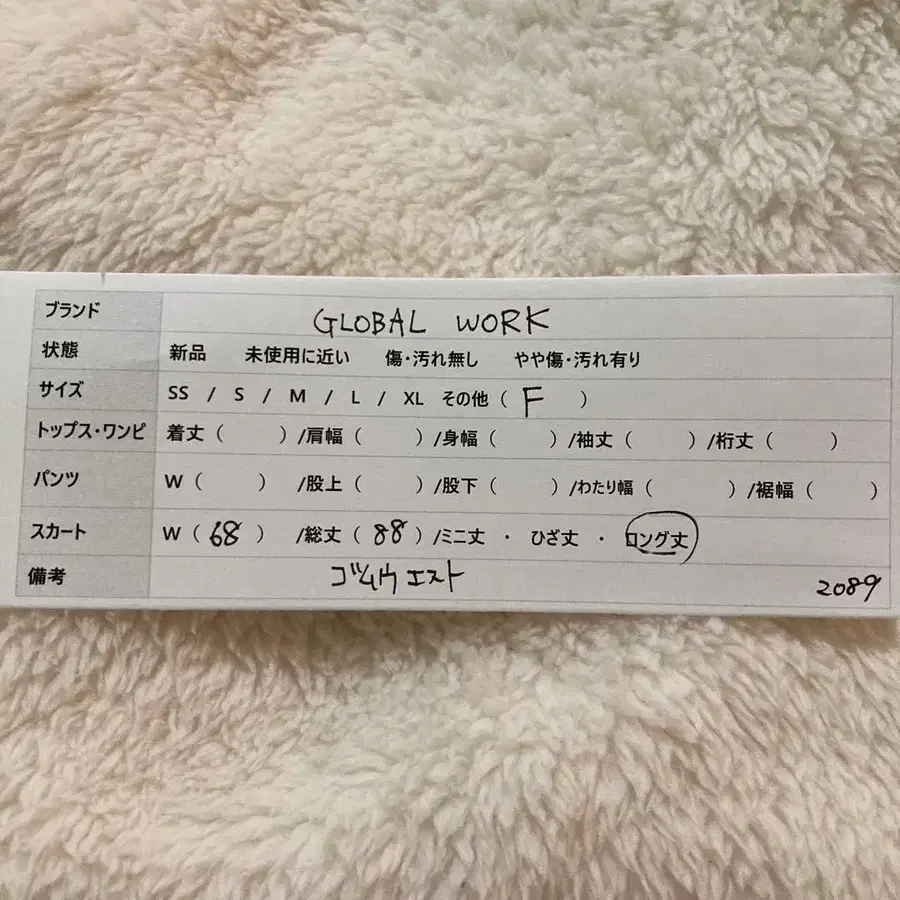 ブランド GLOBAL WORK
状態 新品 未使用に近い 傷・汚れ無し やや傷・汚れ有り
サイズ SS / S / M / L / XL その他 ( F )
トップス・ワンピ 着丈 ( ) /肩幅 ( ) /身幅 ( ) /袖丈 ( ) /桁丈 ( )
パンツ W ( ) /股上 ( ) /股下 ( ) /わたり幅 ( ) /裾幅 ( )
スカート W ( 68 ) /総丈 ( 88 ) /ミニ丈 ・ ひざ丈 ・ ロング丈
備考 ゴムウエスト 2089